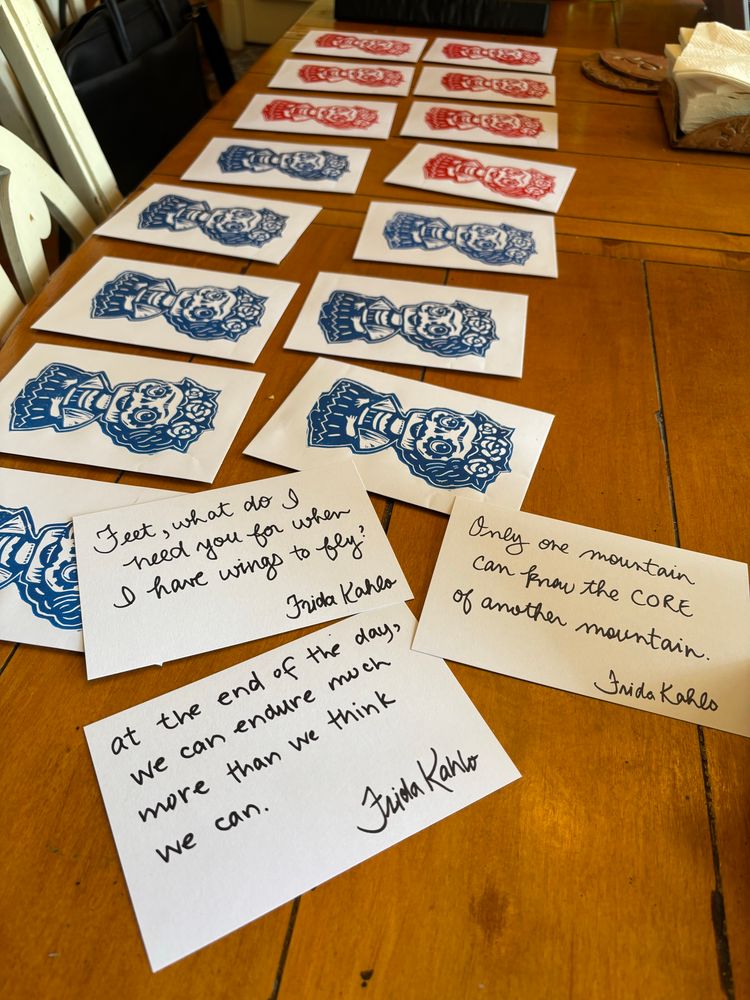 Feet, what do I
need you for when
I have wings to fly?
Frida Kahlo
Only one mountain
can know the CORE
of another mountain.
Frida Kahlo
at the end of the day,
we can endure much
more than we think
we can.
Frida Kahlo